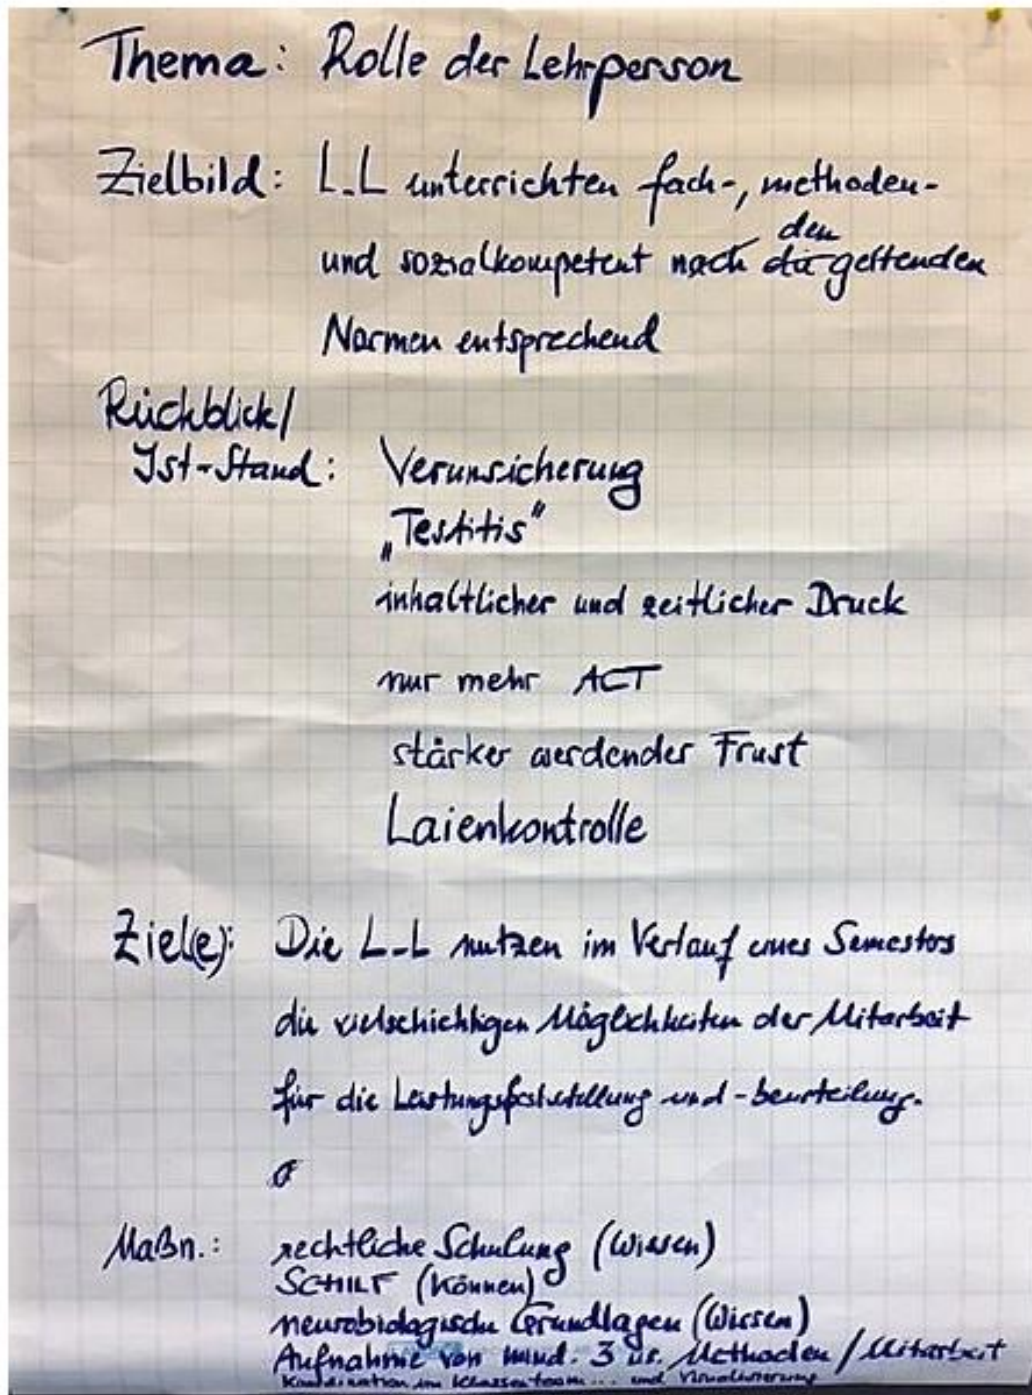 Thema: Rolle der Lehrperson
Zielbild: L-L unterrichten fach-, methoden-
den
und sozialkompetent nach die geltenden
Normen entsprechend
Rückblick/
Ist-Stand: Verunsicherung
„Testitis"
inhaltlicher und zeitlicher Druck
nur mehr ACT
stärker werdender Frust
Laienkontrolle
Ziel(e): Die L-L nutzen im Verlauf eines Semesters
die vielschichtigen Möglichkeiten der Mitarbeit
für die Leistungsfeststellung und -beurteilung.
Maßn.: rechtliche Schulung (Wissen)
SCHILF (Können)
neurobiologische Grundlagen (Wissen)
Aufnahme von mind. 3 Methoden / Mitarbeit
Koordination im Klassenteam... und Visualisierung